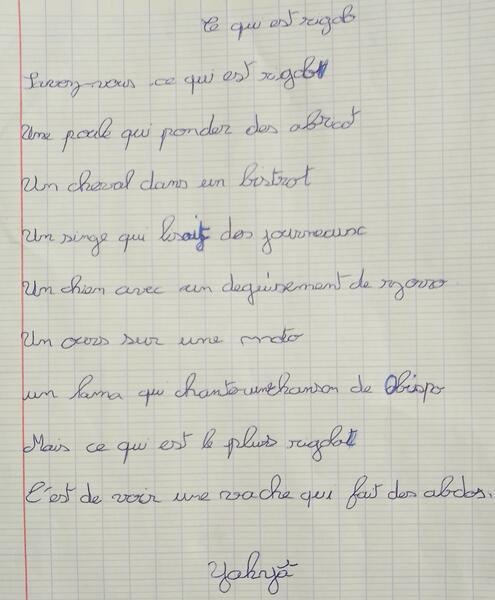 Ce qui est rigolo
Savez-vous ce qui est rigolo
Une poule qui ponder des abricot
Un cheval dans un bistrot
Un singe qui lisait des journeaux
Un chien avec un deguisement de zorro
Un ours sur une moto
un lama qui chanter une chanson de Obispo
Mais ce qui est le pluis rigolo
C'est de voir une vache qui fait des abdos.
Yahyã